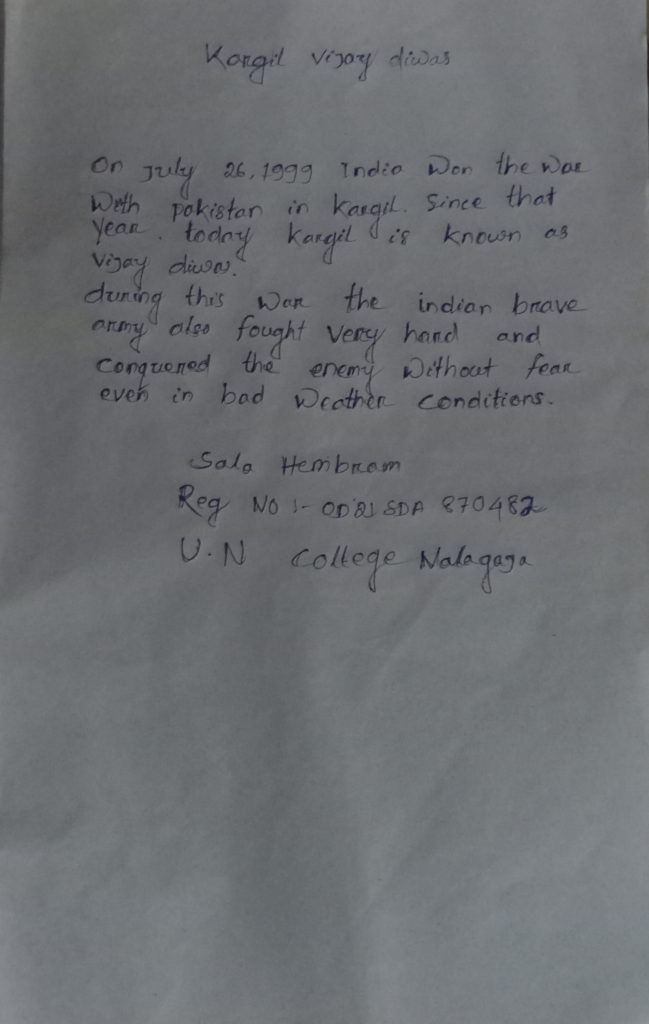 Kargil vijay diwas
On July 26, 1999 India Won the War
With pakistan in kargil. Since that
year. today kargil is known as
Vijay diwa.
during this War the indian brave
army also fought very hard and
conquered the enemy Without fear
even in bad Weather conditions.
Sala Hembram
Reg NO :- OD'21 SDA 870482
U.N College Nalagaja